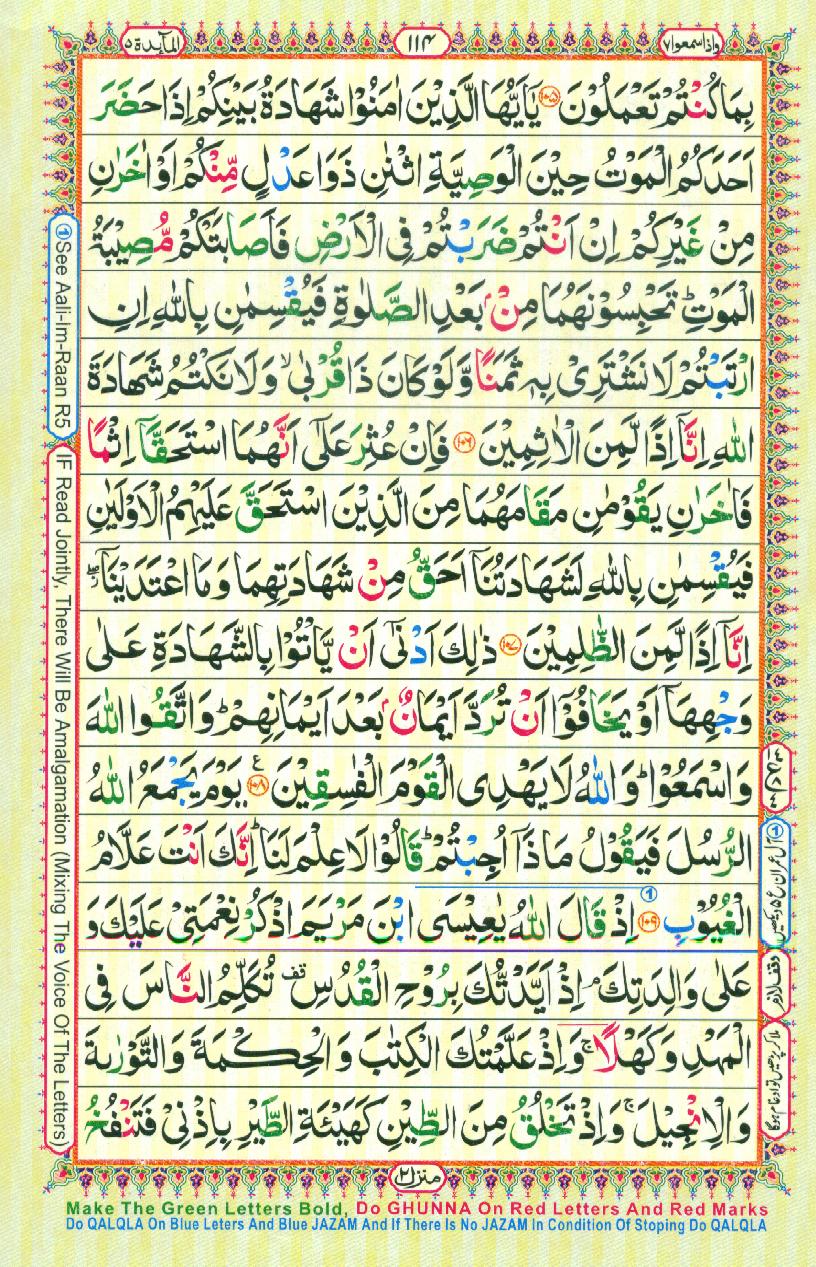 واذا سمعوا ۷
۱۱۴
المآىدة ۵
بِمَا كُنْتُمْ تَعْمَلُوْنَ ﴿۱۰۵﴾ يٰۤاَيُّهَا الَّذِيْنَ اٰمَنُوْا شَهَادَةُ بَيْنِكُمْ اِذَا حَضَرَ
اَحَدَكُمُ الْمَوْتُ حِيْنَ الْوَصِيَّةِ اثْنٰنِ ذَوَا عَدْلٍ مِّنْكُمْ اَوْ اٰخَرٰنِ
مِنْ غَيْرِكُمْ اِنْ اَنْتُمْ ضَرَبْتُمْ فِى الْاَرْضِ فَاَصَابَتْكُمْ مُّصِيْبَةُ
الْمَوْتِ ؕ تَحْبِسُوْنَهُمَا مِنْۢ بَعْدِ الصَّلٰوةِ فَيُقْسِمٰنِ بِاللّٰهِ اِنِ
ارْتَبْتُمْ لَا نَشْتَرِىْ بِهٖ ثَمَنًا وَّلَوْ كَانَ ذَا قُرْبٰى ۙ وَلَا نَكْتُمُ شَهَادَةَ
اللّٰهِ اِنَّاۤ اِذًا لَّمِنَ الْاٰثِمِيْنَ ﴿۱۰۶﴾ فَاِنْ عُثِرَ عَلٰۤى اَنَّهُمَا اسْتَحَقَّاۤ اِثْمًا
فَاٰخَرٰنِ يَقُوْمٰنِ مَقَامَهُمَا مِنَ الَّذِيْنَ اسْتَحَقَّ عَلَيْهِمُ الْاَوْلَيٰنِ
فَيُقْسِمٰنِ بِاللّٰهِ لَشَهَادَتُنَاۤ اَحَقُّ مِنْ شَهَادَتِهِمَا وَمَا اعْتَدَيْنَاۤ ۖ
اِنَّاۤ اِذًا لَّمِنَ الظّٰلِمِيْنَ ﴿۱۰۷﴾ ذٰلِكَ اَدْنٰۤى اَنْ يَّاْتُوْا بِالشَّهَادَةِ عَلٰى
وَجْهِهَاۤ اَوْ يَخَافُوْۤا اَنْ تُرَدَّ اَيْمَانٌۢ بَعْدَ اَيْمَانِهِمْ ؕ وَاتَّقُوا اللّٰهَ
وَاسْمَعُوْا ؕ وَاللّٰهُ لَا يَهْدِى الْقَوْمَ الْفٰسِقِيْنَ ﴿۱۰۸﴾ ع يَوْمَ يَجْمَعُ اللّٰهُ
الرُّسُلَ فَيَقُوْلُ مَاذَاۤ اُجِبْتُمْ ؕ قَالُوْا لَا عِلْمَ لَنَا ؕ اِنَّكَ اَنْتَ عَلَّامُ
الْغُيُوْبِ ﴿۱۰۹﴾ ① اِذْ قَالَ اللّٰهُ يٰعِيْسَى ابْنَ مَرْيَمَ اذْكُرْ نِعْمَتِىْ عَلَيْكَ وَ
عَلٰى وَالِدَتِكَ ۘ اِذْ اَيَّدْتُّكَ بِرُوْحِ الْقُدُسِ قف تُكَلِّمُ النَّاسَ فِى
الْمَهْدِ وَكَهْلًا ۚ وَاِذْ عَلَّمْتُكَ الْكِتٰبَ وَالْحِكْمَةَ وَالتَّوْرٰىةَ
وَالْاِنْجِيْلَ ۚ وَاِذْ تَخْلُقُ مِنَ الطِّيْنِ كَهَيْئَةِ الطَّيْرِ بِاِذْنِىْ فَتَنْفُخُ
① See Aali-Im-Raan R5
IF Read Jointly, There Will Be Amalgamation (Mixing The Voice Of The Letters)
① آل عمران ع ۵ دیکھیں
وقف لازم
ملا کر پڑھیں تو ادغام ہوگا
منزل ۲
Make The Green Letters Bold, Do GHUNNA On Red Letters And Red Marks
Do QALQLA On Blue Leters And Blue JAZAM And If There Is No JAZAM In Condition Of Stoping Do QALQLA